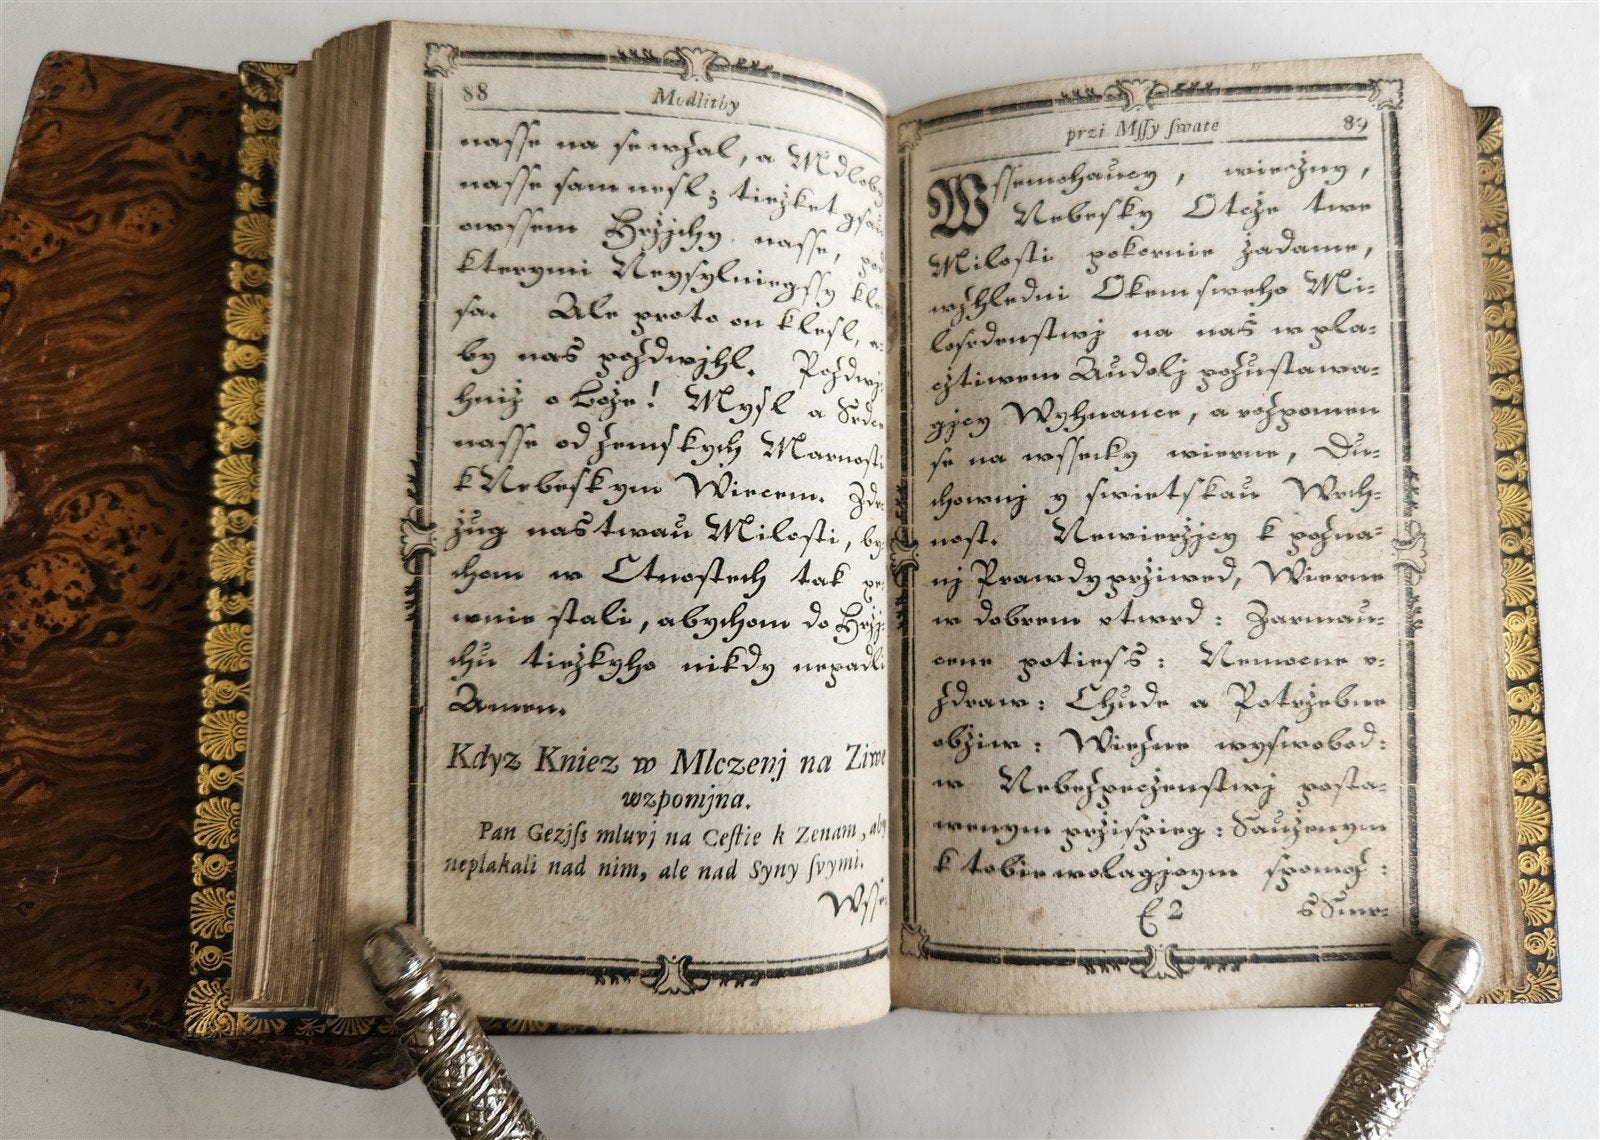 88
Modlitby
nasse na se wzal, a Mdloby
nasse sam nesl; tiezket gsau
owssem Hrzjchy nasse, pod
kterymi Neysylniegssy kle-
sa. Ale proto on klesl, a-
by nas pozdwjhl. Pozdwj-
hniz o Boze! Mysl a Srdce
nasse od zemskych Marnosti
k Nebeskym Wiecem. Zdr-
zug nas twau Milosti, by-
chom w Ctnostech tak pe-
wnie stali, abychom do Hrzj-
chu tiezkyho nikdy nepadli
Amen.
Kdyz Kniez w Mlczenj na Ziwe
wzpomjna.
Pan Gezjſs mluvj na Ceſtie k Zenam, aby
neplakali nad nim, ale nad Syny ſvymi.
Wsse-
przi Mſſy ſwate
89
Wssemohaucy, wieczny,
Nebesky Otcze twe
Milosti pokornie zadame,
wzhledni Okem sweho Mi-
losrdenstwj na nas w pla-
cztiwem Audolj pozustawa-
gjcy Wyhnance, a rozpomen
se na wssecky wierne, Du-
chownj y swietskau Wrch-
nost. Newierzjcy k pozna-
nj Prawdy prziwed, Wierne
w dobrem vtwrd: Zarmau-
cene potiess: Nemocne v-
zdraw: Chude a Potrzebne
obziw: Wiezne wyswobod:
w Nebezpeczenstwj posta-
wenym przispieg: Sauzenym
k tobie wolagjcym spomoz:
E 2
s Smr-